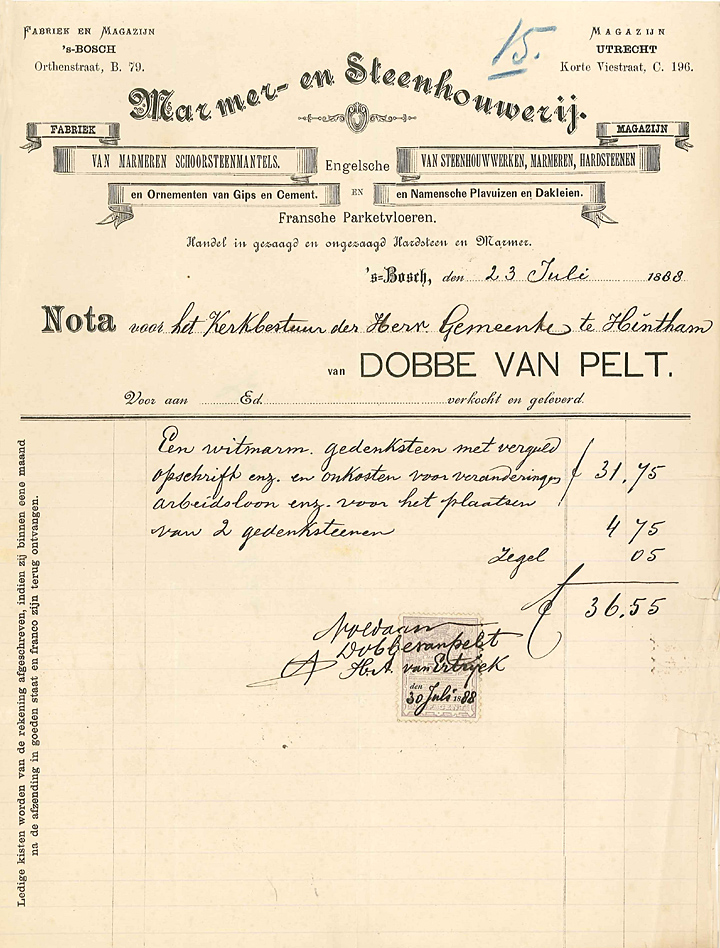 FABRIEK EN MAGAZIJN
's-BOSCH
Orthenstraat, B. 79.
15.
MAGAZIJN
UTRECHT
Korte Viestraat, C. 196.
Marmer- en Steenhouwerij.
FABRIEK
MAGAZIJN
VAN MARMEREN SCHOORSTEENMANTELS.
Engelsche
VAN STEENHOUWWERKEN, MARMEREN, HARDSTEENEN
en Ornementen van Gips en Cement.
EN
en Namensche Plavuizen en Dakleien.
Fransche Parketvloeren.
Handel in gezaagd en ongezaagd Hardsteen en Marmer.
's-Bosch, den 23 Juli 1888
Nota voor het Kerkbestuur der Herv. Gemeente te Hintham
van DOBBE VAN PELT.
Voor aan Ed. verkocht en geleverd.
Een witmarm. gedenksteen met verguld
opschrift enz. en onkosten voor veranderingen f 31,75
arbeidsloon enz. voor het plaatsen
van 2 gedenksteenen 4 75
Zegel 05
f 36.55
Voldaan
Dobbe van Pelt
H.A. van Ertryck
den
30 Juli 1888
Ledige kisten worden van de rekening afgeschreven, indien zij binnen eene maand
na de afzending in goeden staat en franco zijn terug ontvangen.